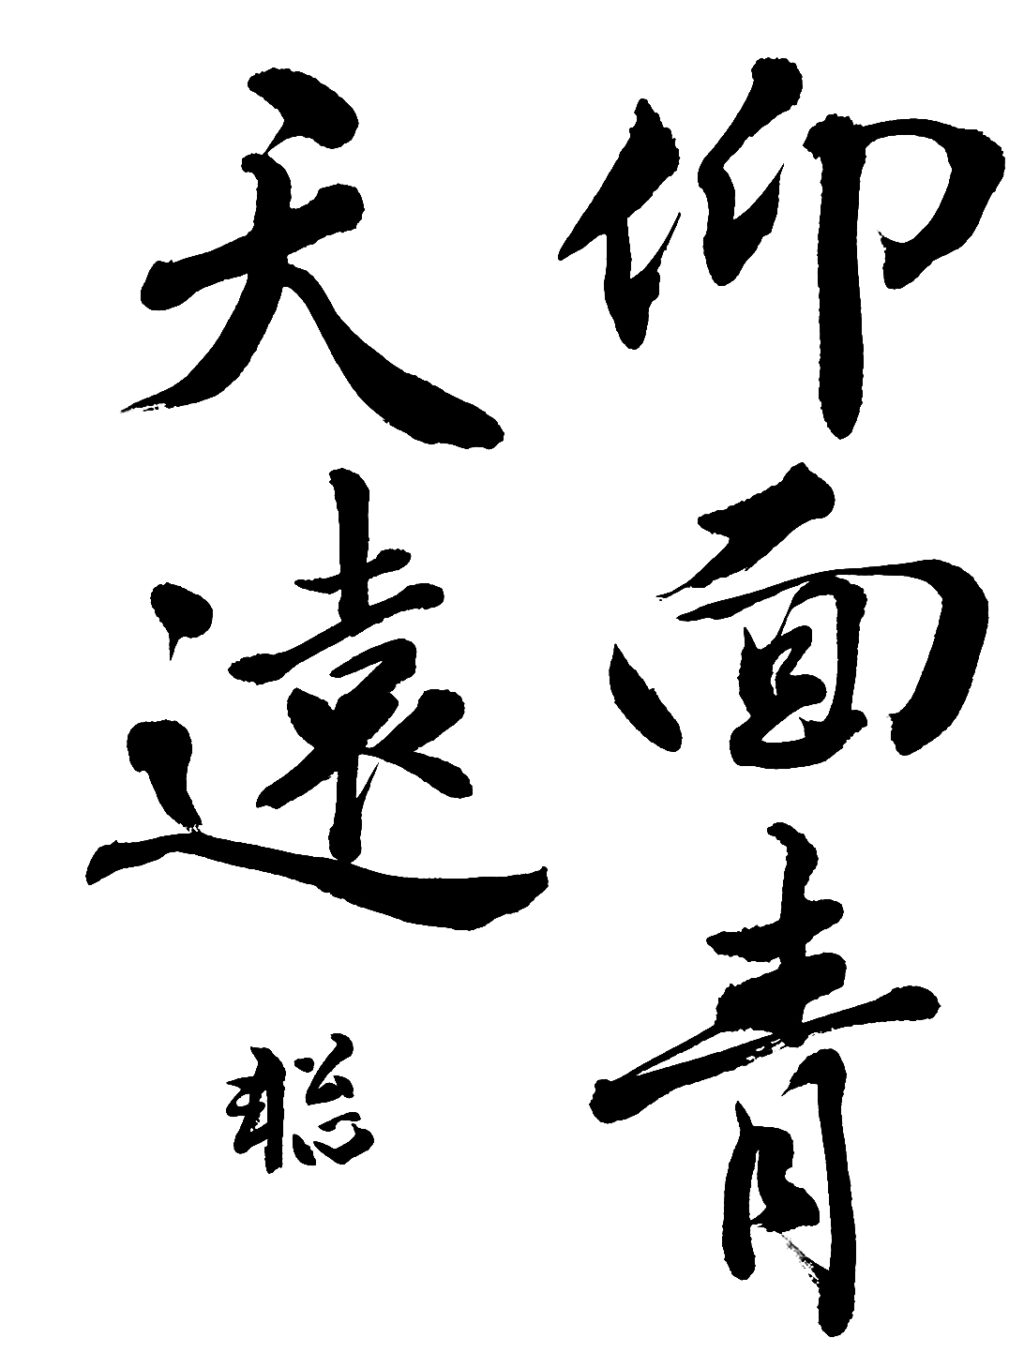 仰面青
天遠
聡